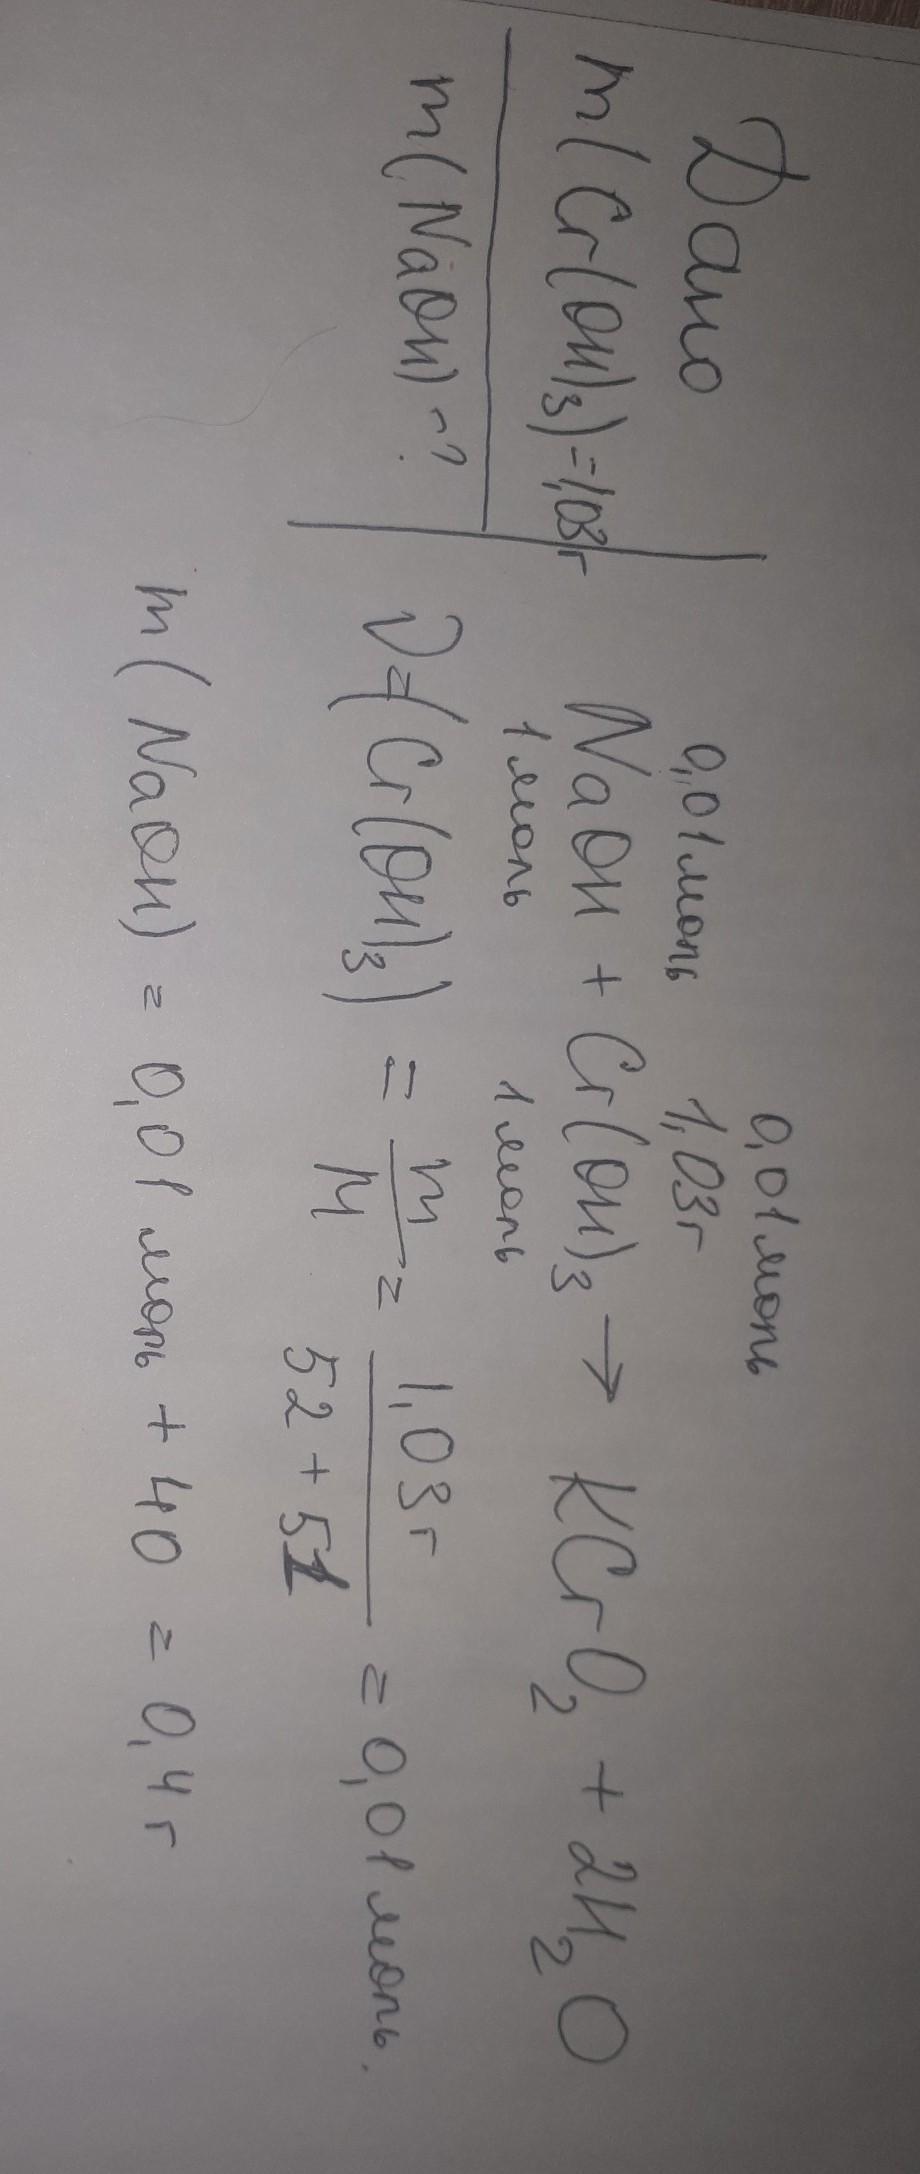 Дано
m(Cr(OH)₃)=1,03г
m(NaOH) - ?
0,01моль
0,01моль 1,03г
NaOH + Cr(OH)₃ → KCrO₂ + 2H₂O
1моль 1моль
ν=(Cr(OH)₃) = m/M = 1,03г/52+51 = 0,01моль.
m(NaOH) = 0,01моль + 40 = 0,4г